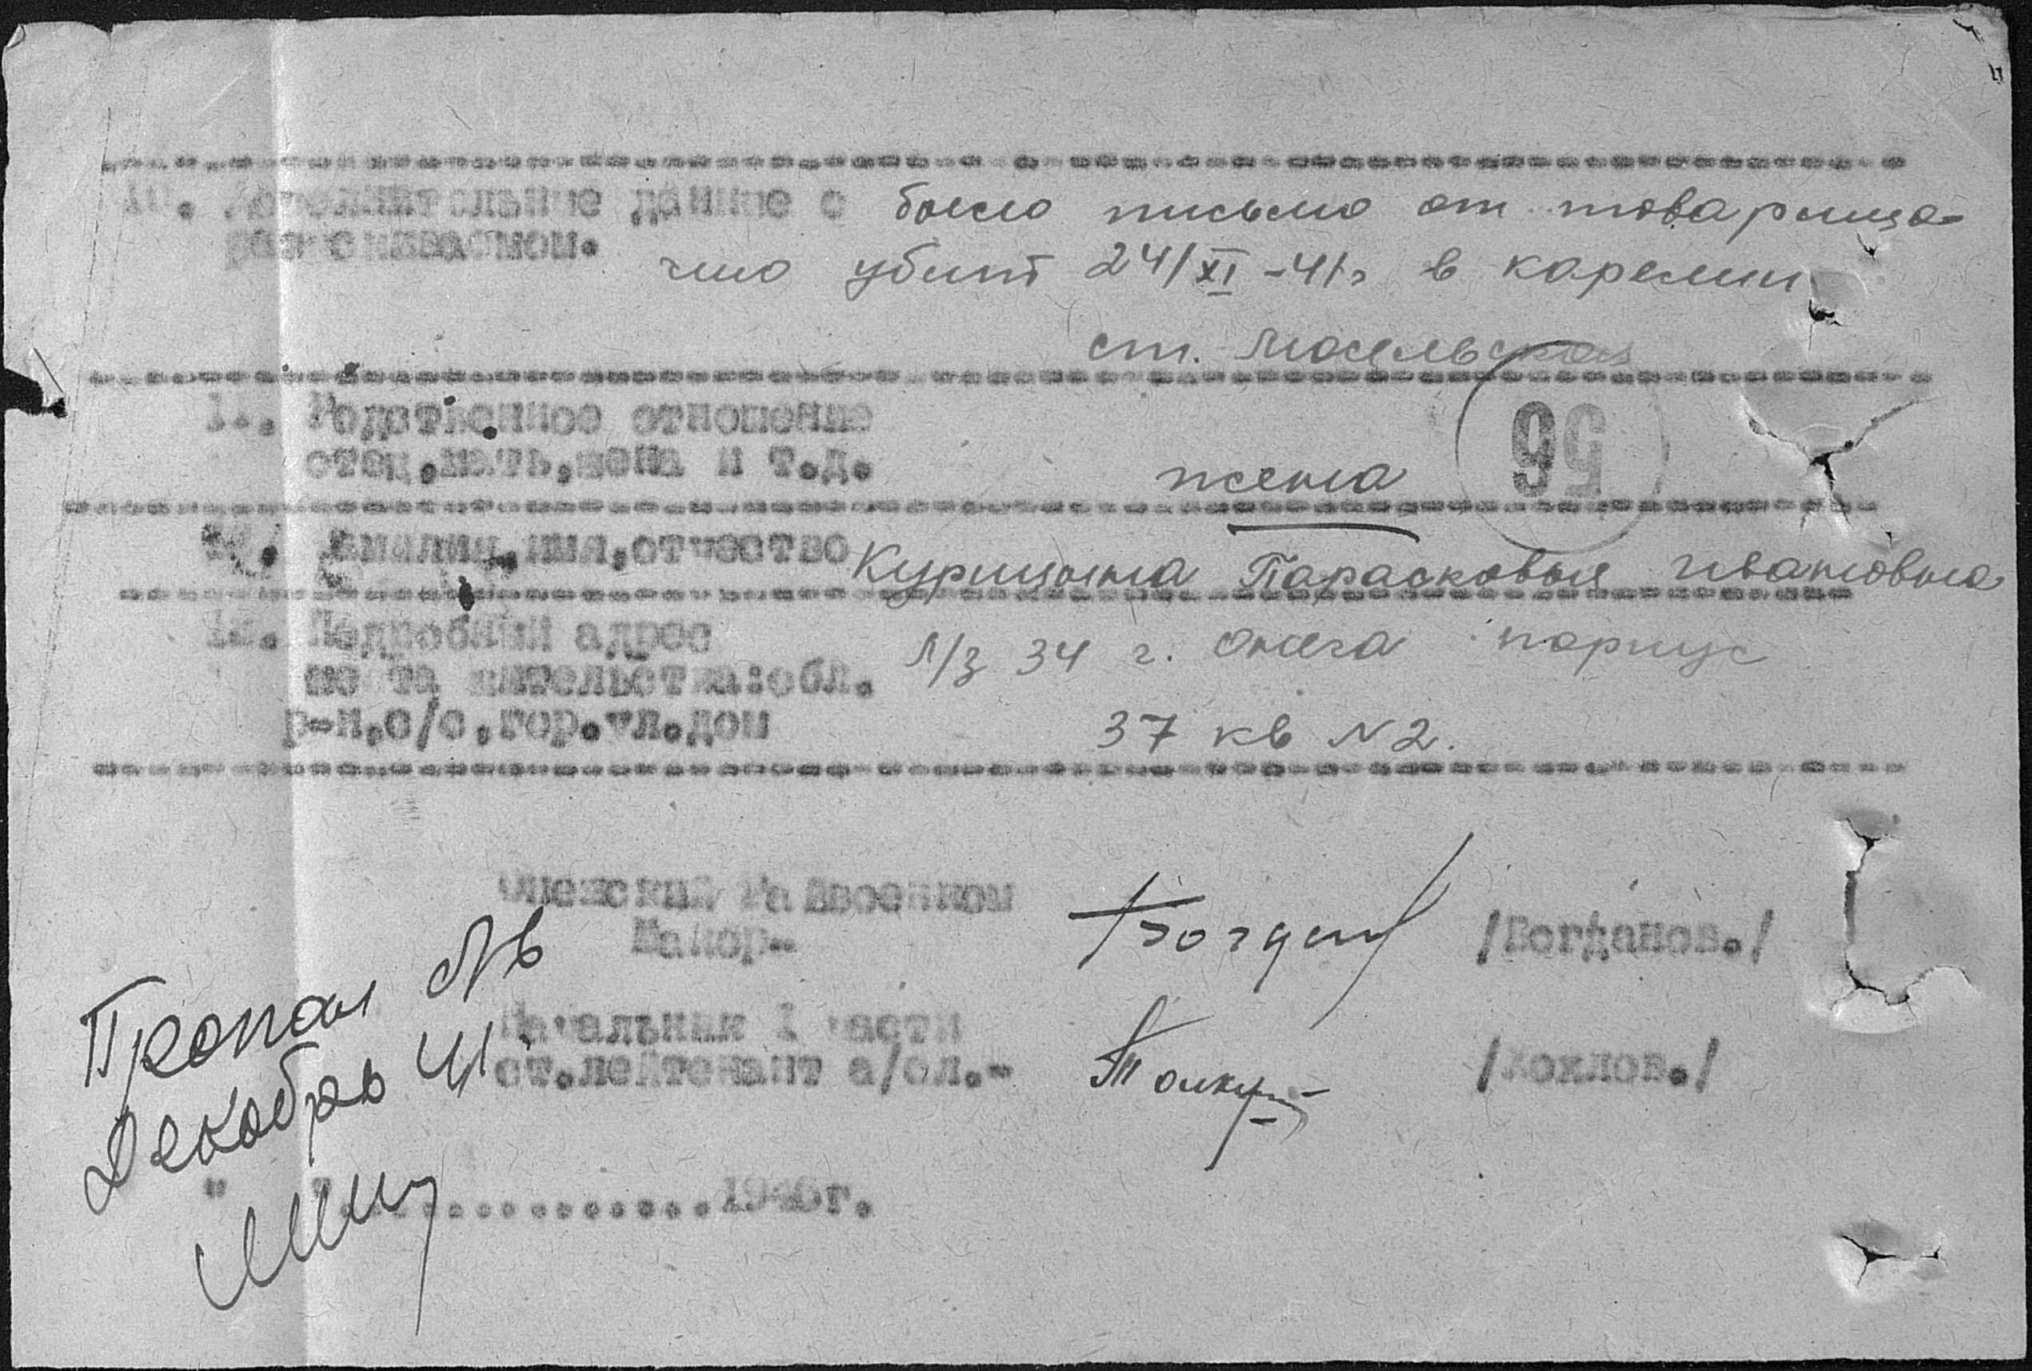 10. Дополнительные данные о
разыскиваемом.
было письмо от товарища
что убит 24/XI-41г в карелии
ст. Масельская
11. Родственное отношение
отец,мать,жена и т.д.
жена
56
12. Фамилия,имя,отчество Курицына Парасковья Ивановна
13. Подробный адрес
места жительства:обл.
р-н,с/с,гор.ул.дом
Л/з 34 г. Онега корпус
37 кв N2.
Онежский Райвоенком
Майор- /Богданов./
Начальник I части
ст.лейтенант а/сл.- /Хохлов./
Пропал
Декабрь 41.
" ".............1946г.